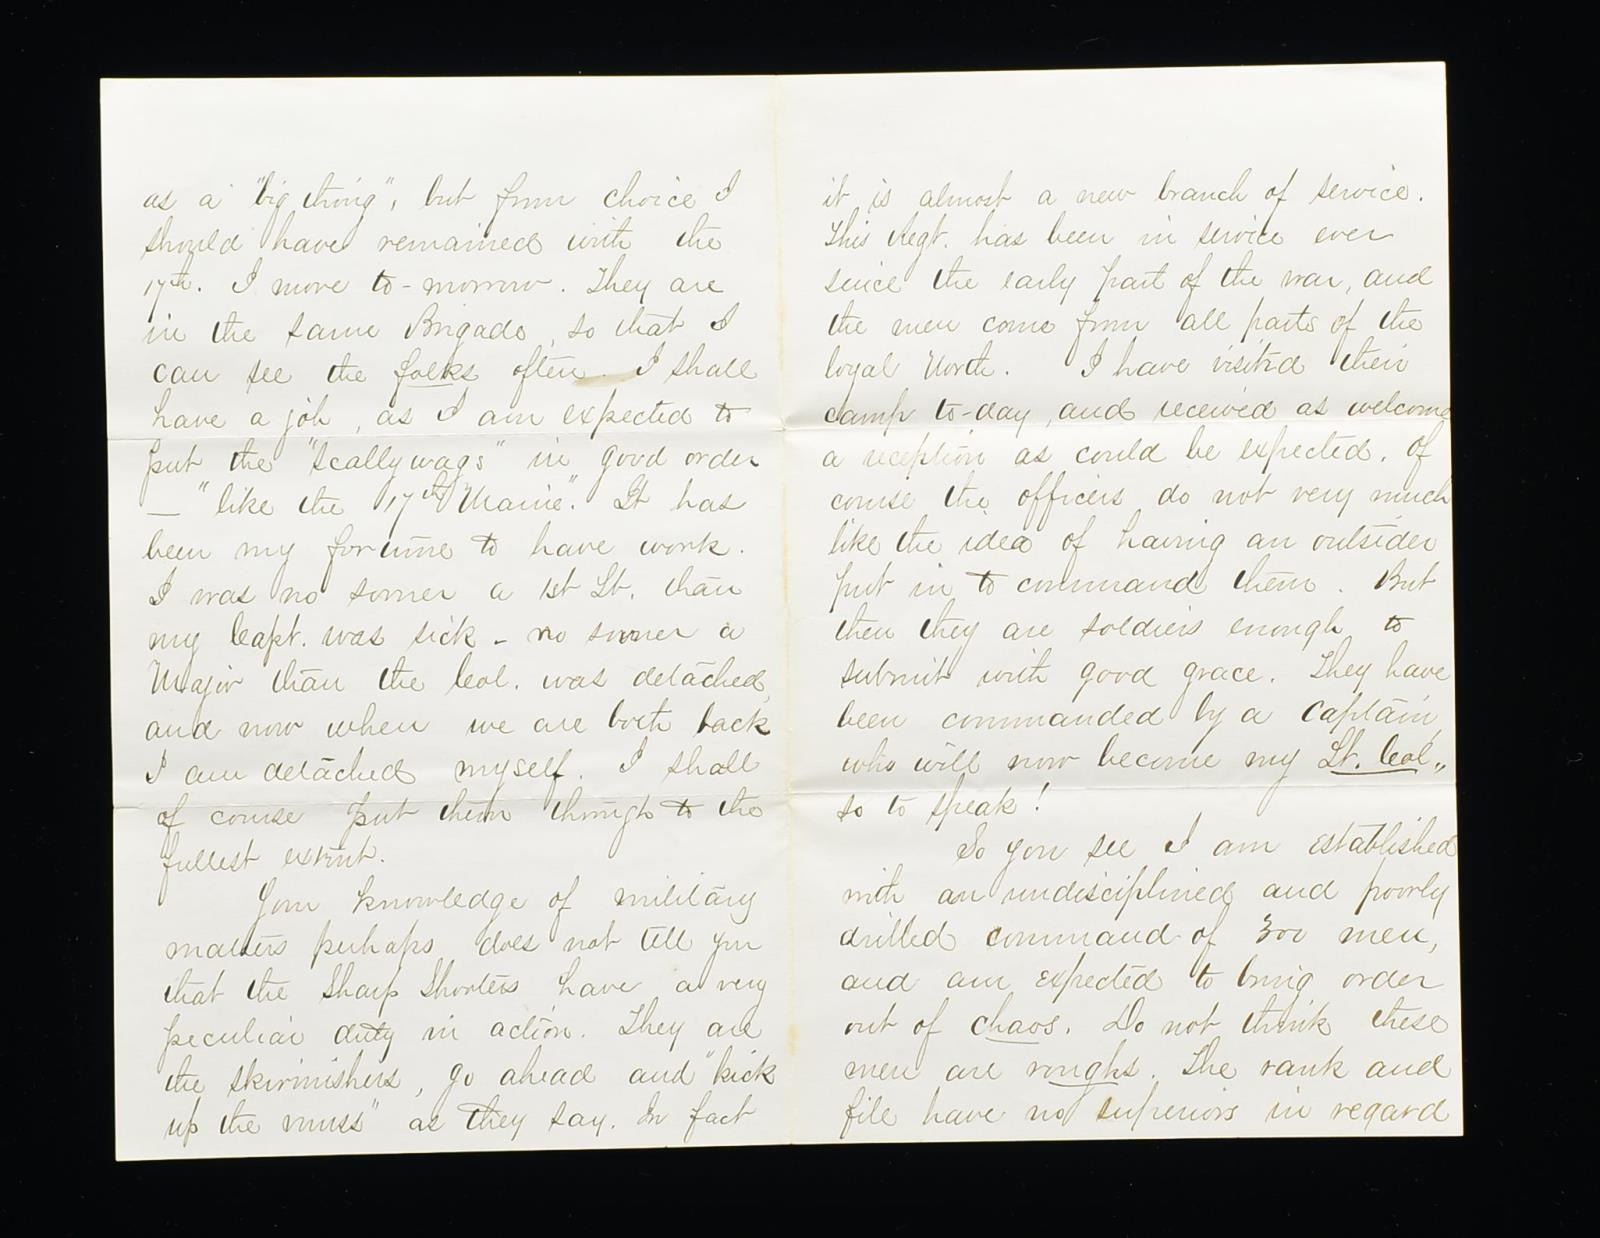 as a "big thing", but from choice I
should have remained with the
17th. I move to-morrow. They are
in the same Brigade, so that I
can see the folks often. I shall
have a job, as I am expected to
put the "scallywags" in good order
— "like the 17th Maine". It has
been my fortune to have work.
I was no sooner a 1st Lt. than
my Capt. was sick - no sooner a
Major than the Col. was detached,
and now when we are both back
I am detached myself. I shall
of course put them through to the
fullest extent.
Your knowledge of military
matters perhaps does not tell you
that the Sharp Shooters have a very
peculiar duty in action. They are
the skirmishers, go ahead and "kick
up the muss" as they say. In fact
it is almost a new branch of service.
This Regt. has been in service ever
since the early part of the war, and
the men come from all parts of the
loyal North. I have visited their
camp to-day, and received as welcome
a reception as could be expected. Of
course the officers do not very much
like the idea of having an outsider
put in to command them. But
then they are soldiers enough to
submit with good grace. They have
been commanded by a Captain,
who will now become my Lt. Col.,
so to speak!
So you see I am established
with an undisciplined and poorly
drilled command of 300 men,
and am expected to bring order
out of chaos. Do not think these
men are roughs. The rank and
file have no superiors in regard